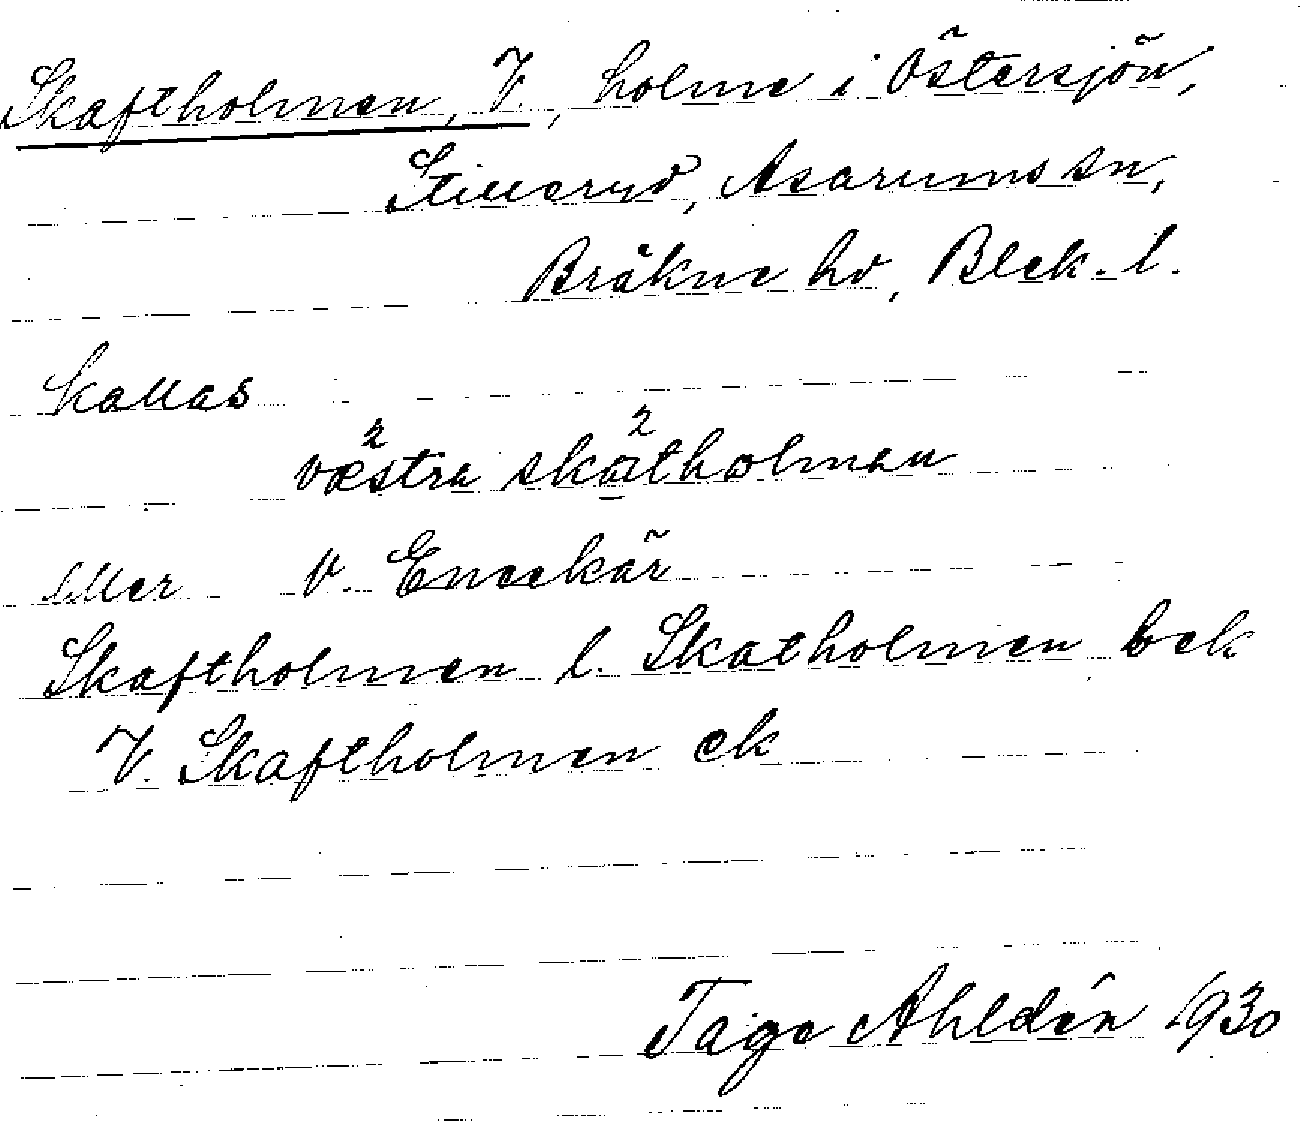 Skaftholmen, V., holme i Östersjön,
Stilleryd, Asarums sn,
Bräkne hd, Blek. l.
kallas
væ²stra skä²tholmen
eller V. Eneskär
Skaftholmen l. Skatholmen bek
V. Skaftholmen ek
Tage Ahldén 1930